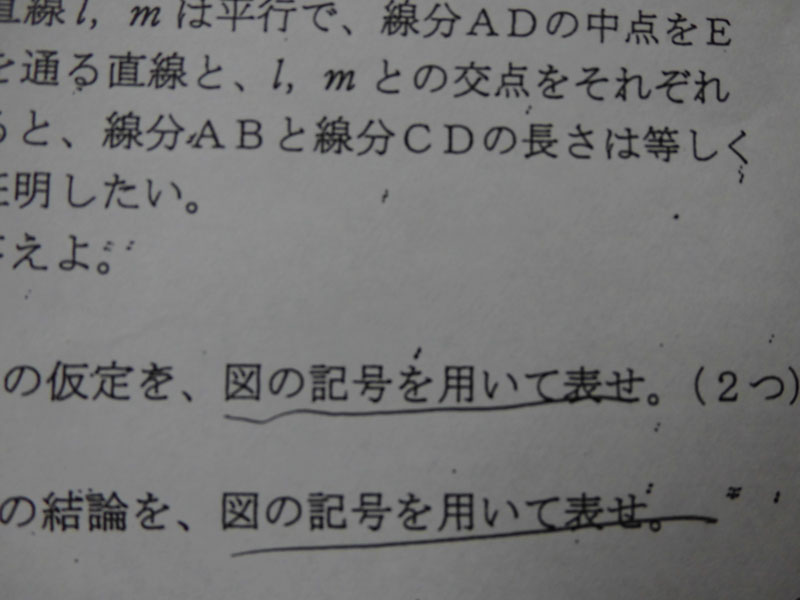 直線l, mは平行で、線分ADの中点をE
を通る直線と、l, mとの交点をそれぞれ
ると、線分ABと線分CDの長さは等しく
証明したい。
答えよ。
の仮定を、図の記号を用いて表せ。(2つ)
の結論を、図の記号を用いて表せ。